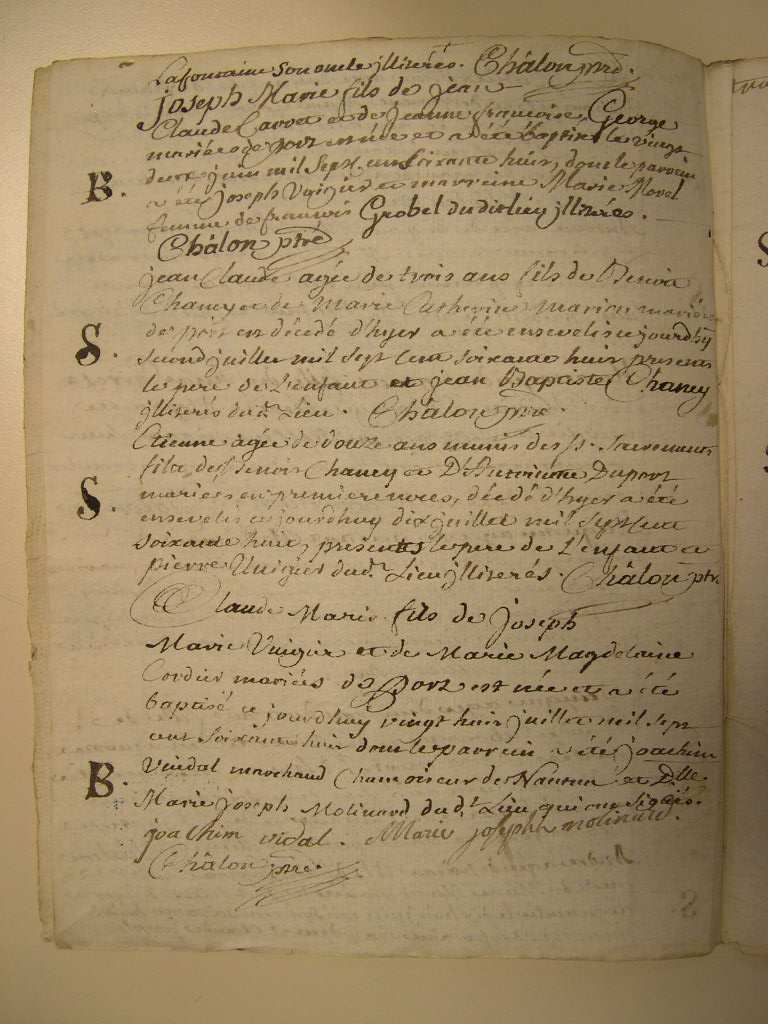 Lafontaine Son oncle jlliterés. Châlon ptre.
joseph Marie fils de jean
Claude Carret et de jeanne françoise George
mariés de port est née et a été baptisé le vingt
deux juin mil Sept cent Soixante huit, dont le parrein
B. a été joseph Vuigier et marreine Marie Morel
femme de françois Grobel dudit lieu jlliterés.
Châlon ptre
jean Claude agée de trois ans fils de Benoit
Chaney et de Marie Catherine Marion mariés
de port est décédé d'hyer a été enseveli cejourdhuy
S. second juillet mil sept Cent soixante huit, presents
le pere de L'enfant et jean Baptiste Chaney
jlliterés dud.t Lieu. Châlon ptre.
Etienne agée de douze ans munis des Ss. Sacrements
fils de Benoit Chaney et D'Antoinette Duport
S. mariés en premiere noces, décédé d'hyer a été
enseveli cejourdhuy dix juillet mil Sept cent
soixante huit, presents le pere de L'enfant et
pierre Vuigier dud.t Lieu jlliterés. Châlon ptre
Claude Marie fils de joseph
Marie Vuigier et de Marie Magdelaine
Cordier mariés de Port est née et a été
baptisé ce jourdhuy vingt huit juillet mil sept
cent soixante huit dont le parrein a été joachim
B. Vuidal marchand Chamoiseur de Nantua et D.lle
Marie joseph Molinard dud.t Lieu qui ont signés.
joachim vidal. Marie joseph molinard.
Châlon ptre.